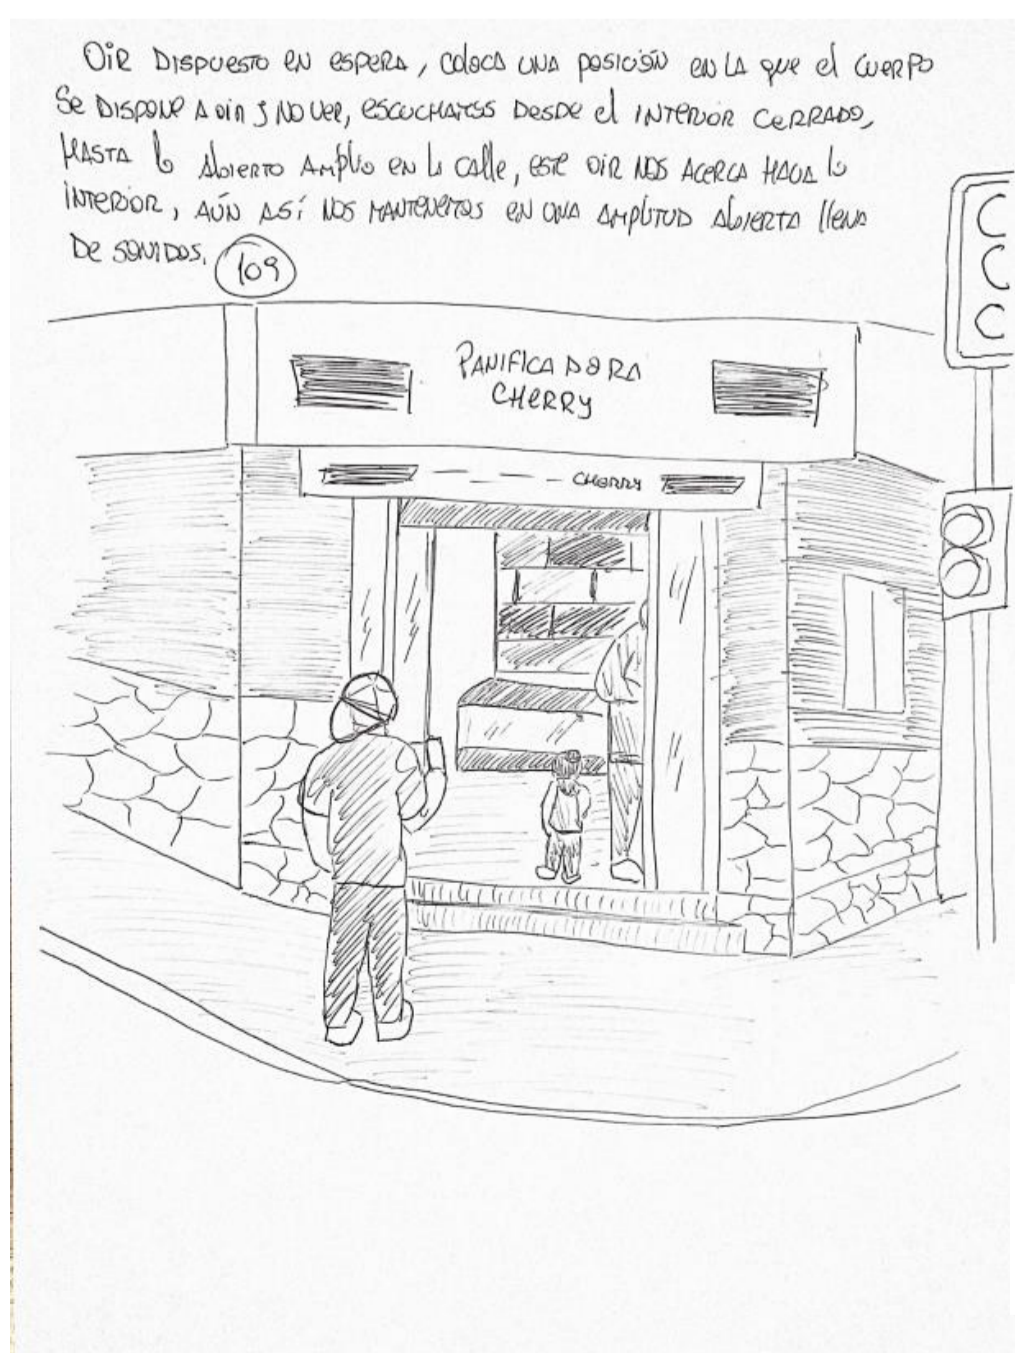 OIR DISPUESTO EN ESPERA, COLOCA UNA POSICIÓN EN LA QUE EL CUERPO
SE DISPONE A OIR Y NO VER, ESCUCHAMOS DESDE EL INTERIOR CERRADO,
HASTA LO ABIERTO AMPLIO EN LA CALLE, ESTE OIR NOS ACERCA HACIA LO
INTERIOR, AÚN ASÍ NOS MANTENEMOS EN UNA AMPLITUD ABIERTA LLENA
DE SONIDOS. 109
PANIFICADORA
CHERRY
CHERRY